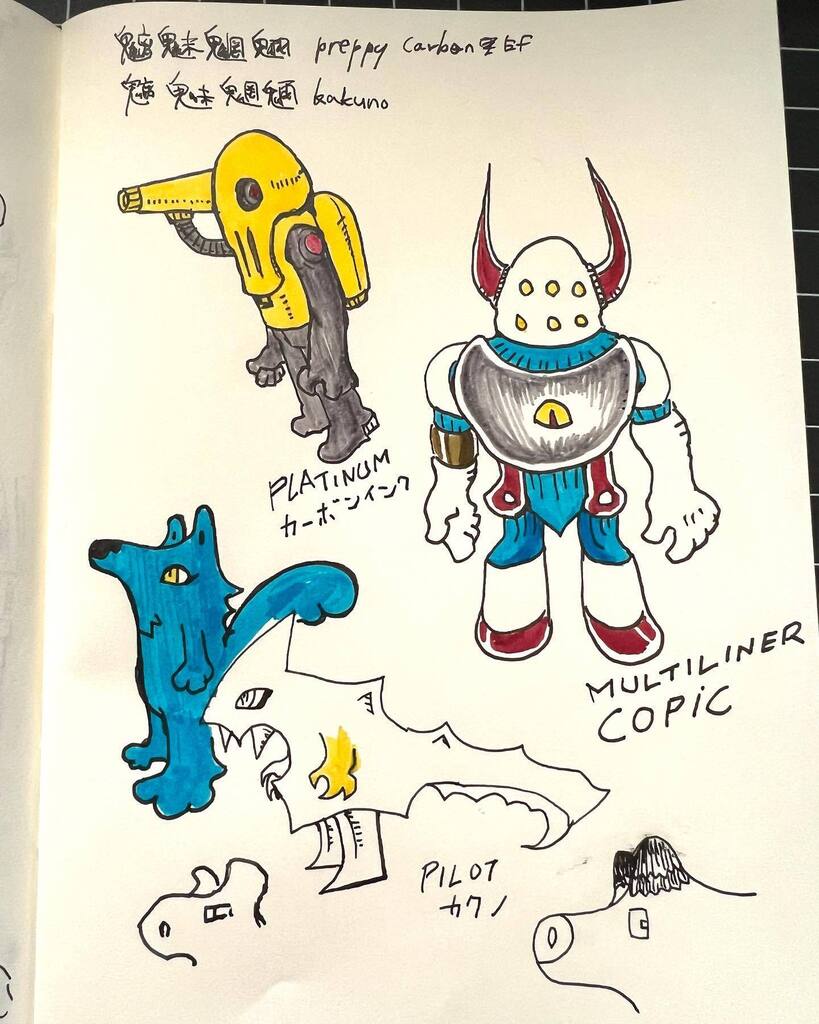 魑魅魍魎 preppy carbon EF
魑魅魍魎 kakuno
PLATINUM
カーボンインク
MULTILINER
COPiC
PILOT
カクノ